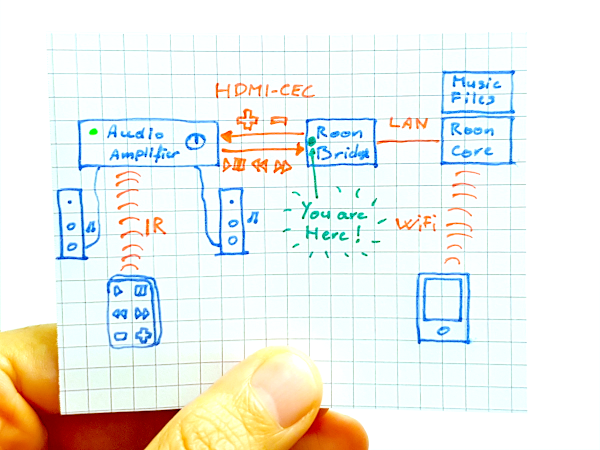 HDMI-CEC
Music
Files
Audio
Amplifier
Roon
Bridge
LAN
Roon
Core
IR
You are
Here!
WiFi